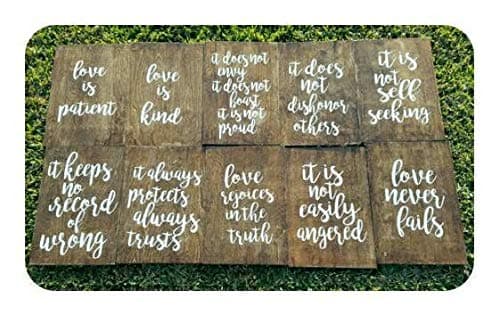 love
is
patient
love
is
kind
it does not
envy
it does not
boast
it is not
proud
it does
not
dishonor
others
it is
not
self
seeking
it keeps
no
record
of
wrong
it always
protects
always
trusts
love
rejoices
in the
truth
it is
not
easily
angered
love
never
fails